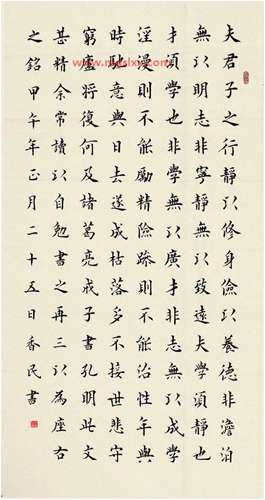 夫君子之行靜以修身儉以養德非澹泊
無以明志非寧靜無以致遠夫學須靜也
才須學也非學無以廣才非志無以成學
淫漫則不能勵精險躁則不能治性年與
時馳意與日去遂成枯落多不接世悲守
窮廬將復何及諸葛亮戒子書孔明此文
甚精余常讀以自勉書之再三以為座右
之銘甲午年正月二十五日香民書